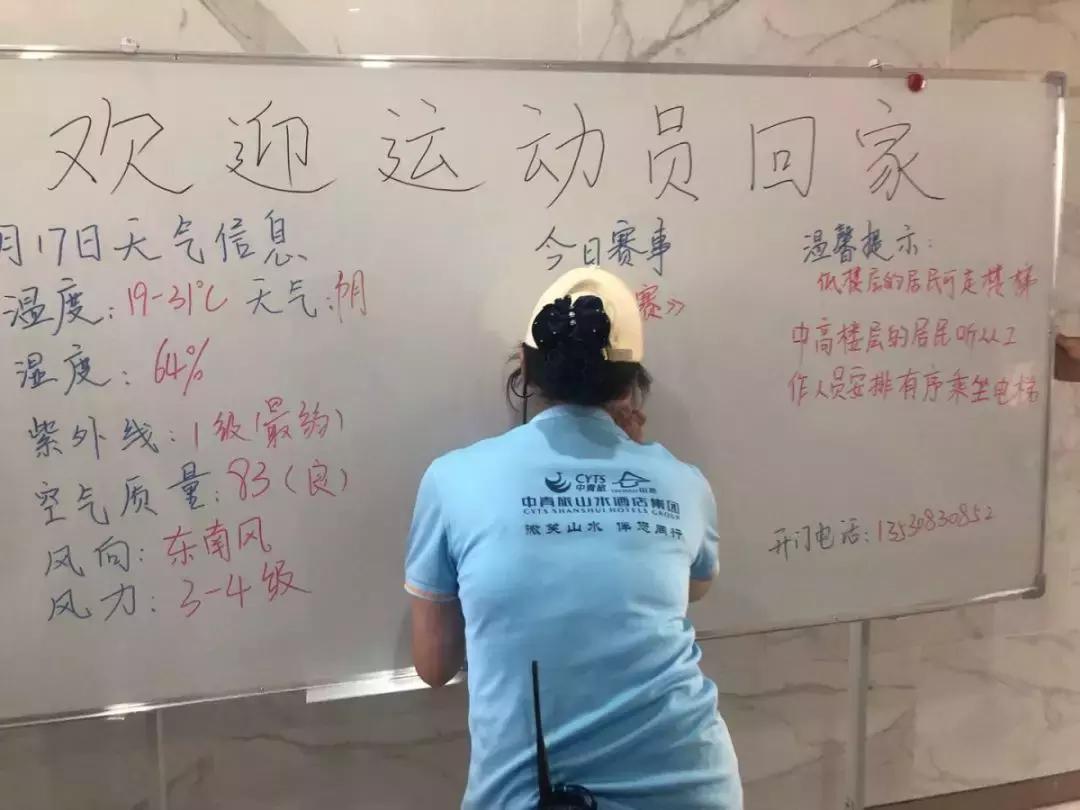 欢迎运动员回家
月17日天气信息
温度：19-31℃ 天气：阴
湿度：64%
紫外线：1级（最弱）
空气质量：83（良）
风向：东南风
风力：3-4级
今日赛事
赛》
温馨提示：
低楼层的居民可走楼梯
中高楼层的居民听从工
作人员安排有序乘坐电梯
开门电话：13530830852
CYTS
中青旅
中青旅山水酒店集团
CYTS SHANSHUI HOTELS GROUP
微笑山水 伴您同行